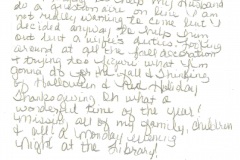 do a questionaire on here I am
not really wanting to come but I
decided anyway to help from
out but a nights duties. looking
around at all the fall decoration
& trying to figure what I'm
gonna do for the fall & thinking
of Halloween & the Holiday
Thanksgiving Oh what a
wonderful time of the year!
missing all of my family, children
& all a Monday evening
night at the library!